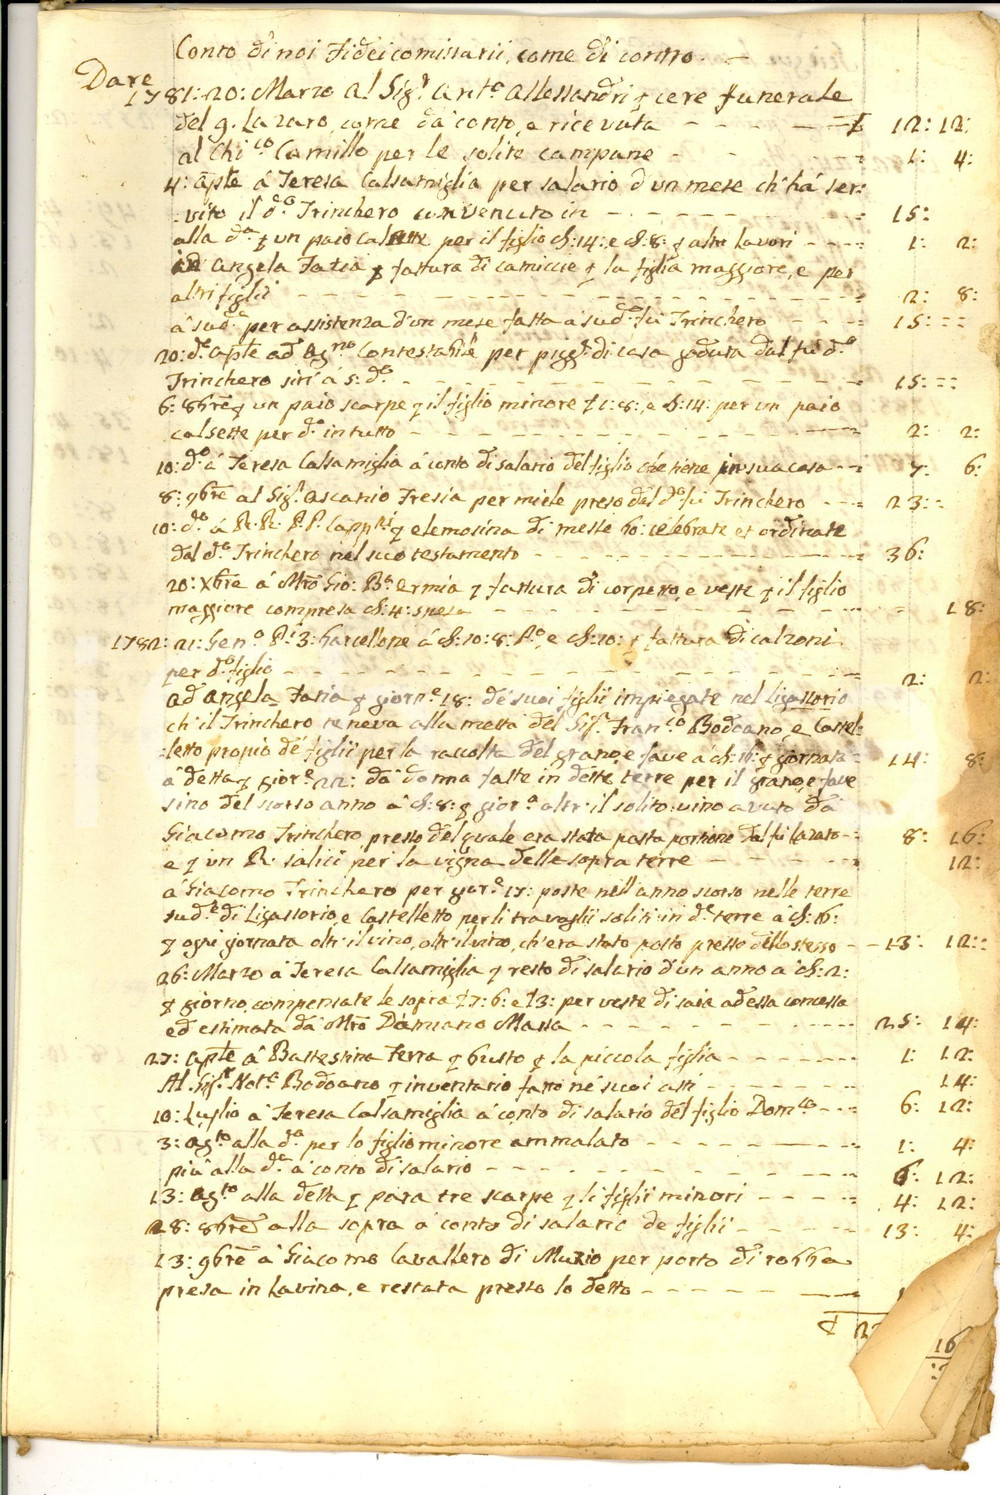 Conto di noi Fideicomissarii, come di contro.
Dare
1781: 20: Marzo al Sig.r Ant.o Allessandri q cere funerale
del q. Lazaro, come da conto, e ricevuta £ 12: 12:
al Chi.co Camillo per le solite campane 1: 4:
4: aple á Teresa Calsamiglia per salario d'un mese ch'há ser:
vito il d.o Trinchero convenuto in 15:
alla d.a q un paio calsette per il figlio s: 14: e s: 8: q altri lavori 1: 2:
ad Angela Fatia q fattura di camiccie q la figlia maggiore, e per
altri figlii 2: 8:
á sud.a per assistenza d'un mese fatta a sud.o fu Trinchero 15: ::
20: d.o aple ad Ag.no Contestabile per pigg.e di casa goduta dal fú d.o
Trinchero sin' á 5: d.o 15: ::
6: 8bre q un paio scarpe q il figlio minore £ 1: 8:, e s: 14: per un paio
calsette per d.o in tutto 2: 2:
10: d.o á Teresa Calsamiglia á conto di salario del figlio che tiene in sua casa 7: 6:
8: 9bre al Sig.r Ascanio Fresia per miele preso dal d.o fú Trinchero 23: :
10: d.o á R. R. P. P. Capp.ni q elemosina di messe 60: celebrate et ordinate
dal d.o Trinchero nel suo testamento 36:
20: Xbre á Mro Gio: B.a Ermia q fattura di corpetto, e veste q il figlio
maggiore compresa s: 4: spesa 18:
1782: 21: Gen.o P.i 3: Barcellone á s: 10: 8: P.o, e s: 10: q fattura di calzoni
per d.o figlio 2: 2:
ad Angela Fatia q giorn.e 18: de' suoi figlii impiegate nel Ligassorio
ch'il Trinchero teneva alla mettá del Sig.r Fran.co Bodoano, e Castel:
:letto propio de' figlii per la raccolta del grano, e fave á s: 16: q giornata 14: 8:
á detta q gior.e 22: da donna fatte in dette terre per il grano, e fave
sino del scorso anno á s: 8: q gior.a oltr'il solito vino avuto da
Giacomo Trinchero, presso del quale era stata posta portione dal fú Lazaro 8: 16:
e q un R. salici per la vigna delle sopra terre 12:
á Giacomo Trinchero per gior.e 17: poste nell'anno scorso nelle terre
sud.e di Ligassorio, e Castelletto per li travaglii soliti in d.e terre á s: 16:
q ogni giornata oltr'il vino, oltr'il vino, ch'era stato posto presso dello stesso 13: 12: :
26: Marzo á Teresa Calsamiglia q resto di salario d'un anno á s: 2:
q giorno, compensate le sopra £ 7: 6: e £ 3: per veste di saia ad essa concessa
ed estimata da Mro Damiano Massa 25: 14:
27: aple á Battestina Terra q busto q la piccola figlia 1: 12:
Al Sig.r Not.o Bodoano q inventario fatto ne' suoi atti 14:
10: Luglio á Teresa Calsamiglia á conto di salario del figlio Dom.co 6: 12:
3: Ag.to alla d.a per lo figlio minore ammalato 1: 4:
piú alla d.a á conto di salario 6: 12:
13: Ag.to alla detta q para tre scarpe q li figlii minori 4: 12:
28: 8bre alla sopra á conto di salario de figlii 13: 4:
13: 9bre á Giacomo Cavallero di Muzio per porto di robba
presa in Lavina, e restata presso lo detto
£ 2
16